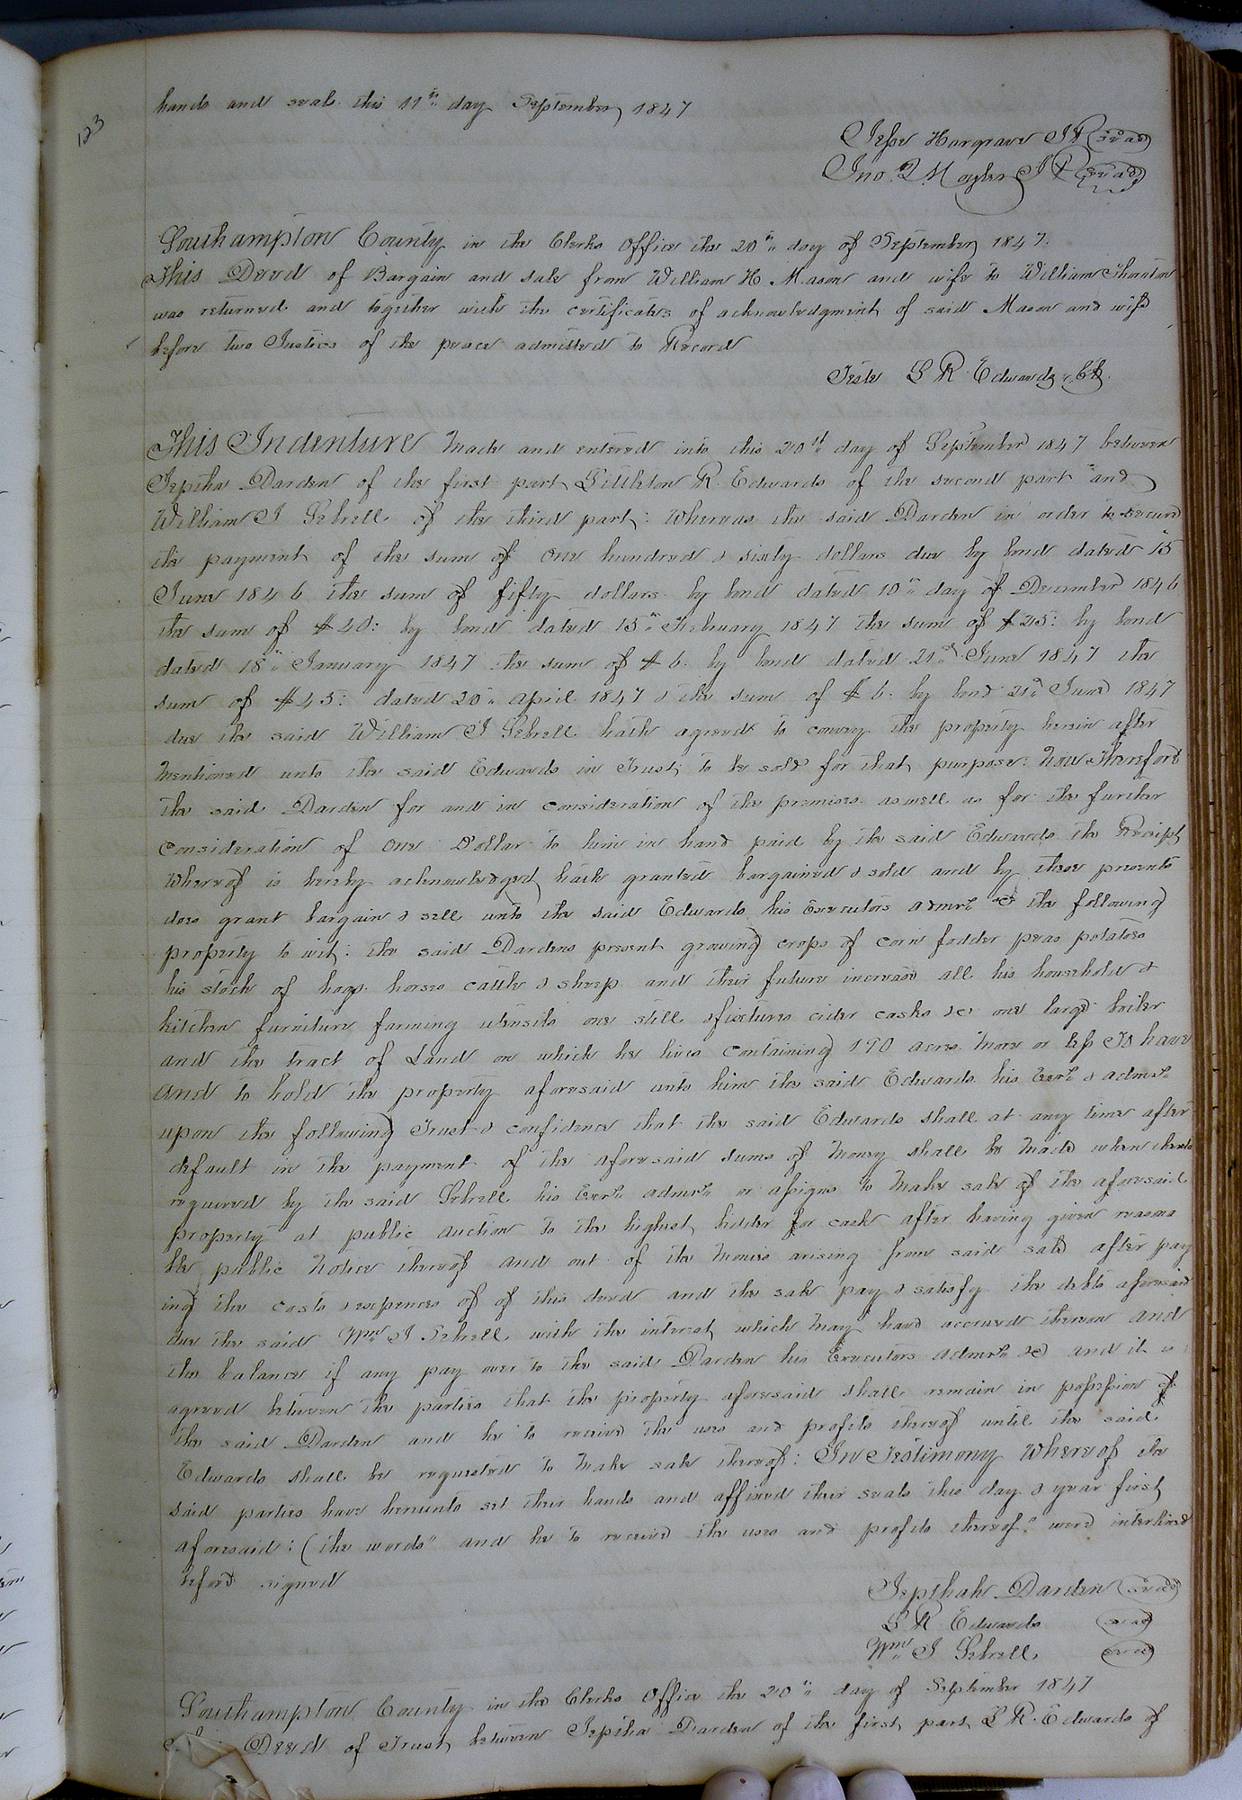 123
hands and seals this 11th day September 1847
Jesse Hargrave JP (seal)
Jno. Q Moyler JP (seal)
Southampton County in the Clerks Office the 20th day of September 1847.
This Deed of Bargain and sale from William H. Mason and wife to William Thornton
was returned and together with the certificates of acknowledgment of said Mason and wife
before two Justices of the peace admitted to Record
Teste L R Edwards Clk.
This Indenture Made and entered into this 20th day of September 1847 between
Jeptha Darden of the first part Littleton R. Edwards of the second part and
William J Sebrell of the third part: Whereas the said Darden in order to secure
the payment of the sum of One hundred & sixty dollars due by bond dated 15
June 1846 the sum of fifty dollars by bond dated 10th day of December 1846
the sum of $40: by bond dated 15th February 1847 the sum of $25: by bond
dated 18th January 1847 the sum of $6. by bond dated 21st June 1847 the
sum of $45: dated 20th April 1847 & the sum of $6. by bond 21st June 1847
due the said William J Sebrell hath agreed to convey the property herein after
Mentioned unto the said Edwards in Trust to be sold for that purpose: Now Therefore
the said Darden for and in consideration of the premises as well as for the further
consideration of One Dollar to him in hand paid by the said Edwards the Receipt
Whereof is hereby acknowledged hath granted bargained & sold and by these presents
does grant bargain & sell unto the said Edwards his Executors admrs &c the following
property to wit: the said Dardens present growing crops of corn fodder peas potatoes
his stock of hogs horses cattle & sheep and their future increase all his household &
kitchen furniture farming utensils one still & fixtures cider casks &c one large boiler
and the tract of Land on which he lives containing 190 acres More or less To have
and to hold the property aforesaid unto him the said Edwards his Exrs & admrs
upon the following Trust & confidence that the said Edwards shall at any time after
default in the payment of the aforesaid sums of Money shall be Made when thereto
required by the said Sebrell his Exrs admrs or assigns to Make sale of the aforesaid
property at public auction to the highest bidder for cash after having given reasona
ble public Notice thereof and out of the Monies arising from said sale after pay
ing the costs & expences of of this deed and the sale pay & satisfy the debts aforesaid
due the said Wm J Sebrell with the interest which May have accrued thereon and
the balance if any pay over to the said Darden his Executors admrs &c and it is
agreed between the parties that the property aforesaid shall remain in possession of
the said Darden and he to receive the uses and profits thereof until the said
Edwards shall be requested to Make sale thereof: In Testimony Whereof the
said parties have hereunto set their hands and affixed their seals this day & year first
aforesaid: (the words "and he to receive the uses and profits thereof" were interlined
before signed
Jepthah Darden (seal)
L R Edwards (seal)
Wm J Sebrell (seal)
Southampton County in the Clerks Office the 20th day of September 1847
Deed of Trust between Jeptha Darden of the first part L R. Edwards of